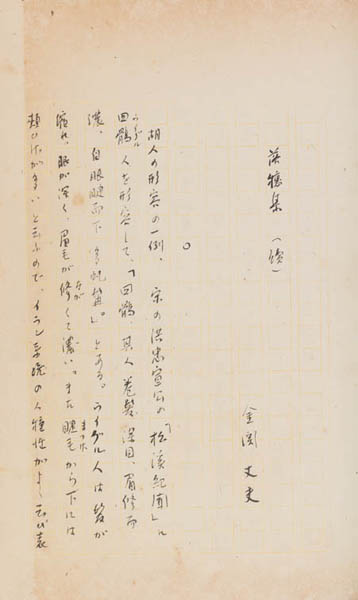 落穂集 (續)
金関丈夫
○
胡人の形容の一例、宋の洪忠宣公の「松漠紀聞」に
回鶻人を形容して、「回鶻、其人巻髪深目、眉修而
濃、自眼睫而下多虬髯。」とある。ウイグル人は髪が
縮れ、眼が深く、眉毛が修くて濃い。また睫毛から下には
頬ひげが多いと云ふので、イラン系統の人種性がよく